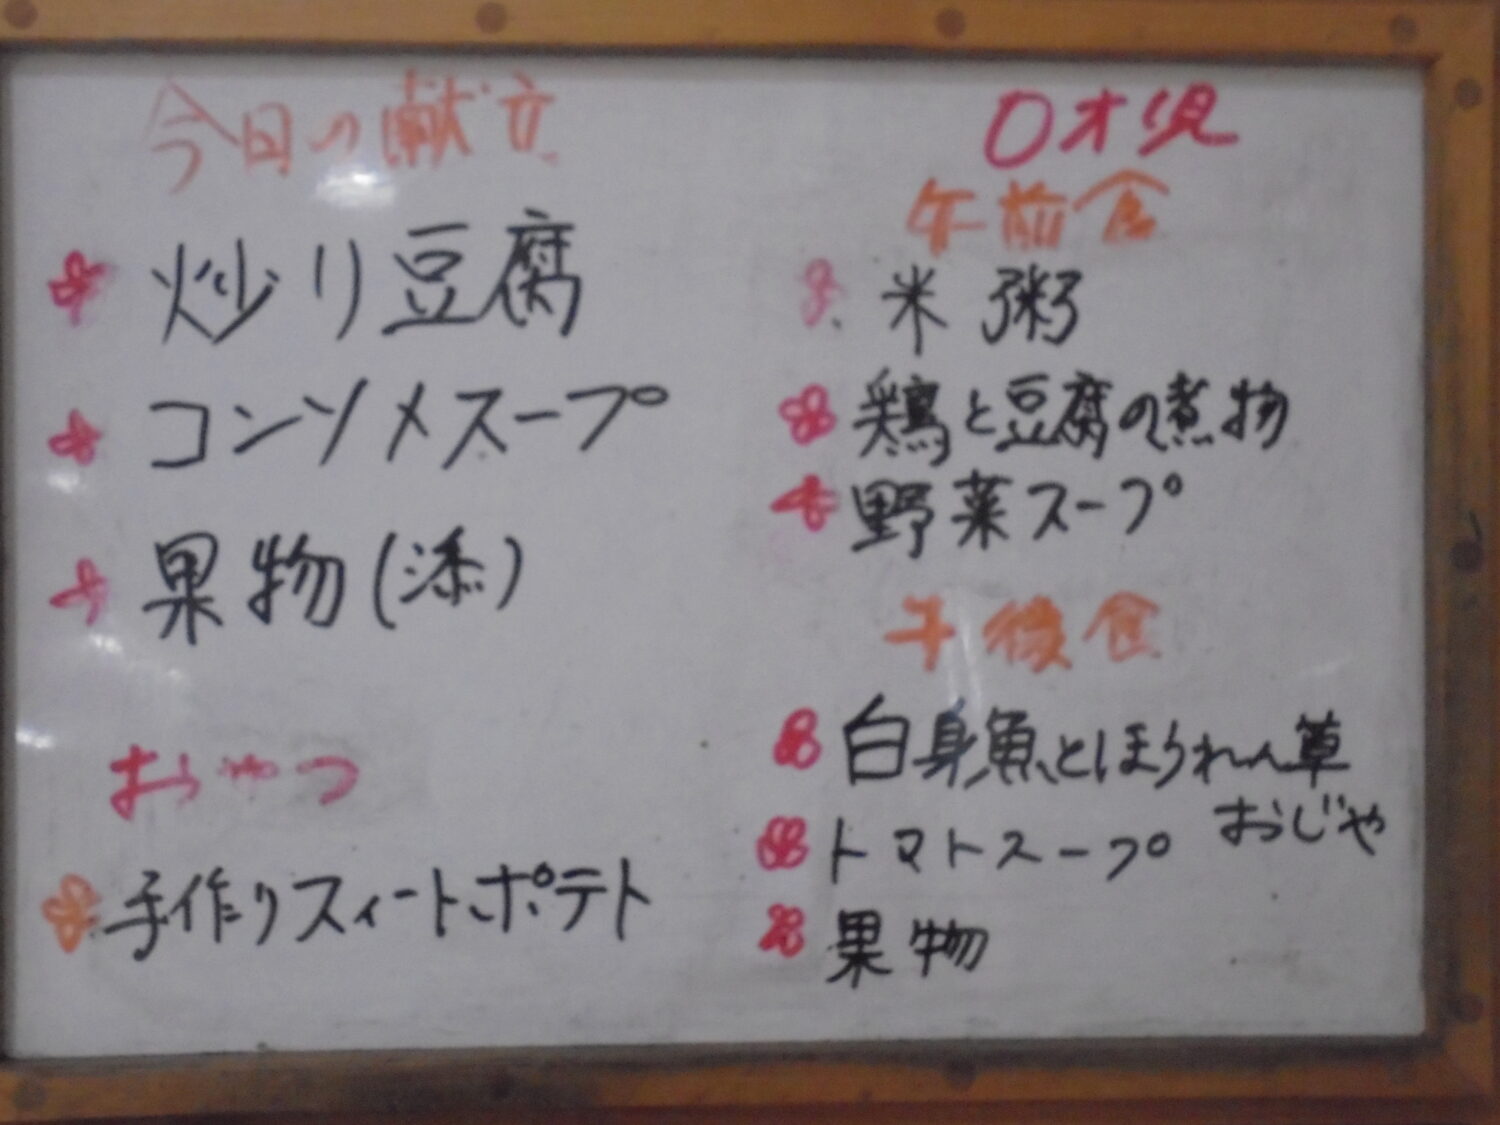 今日の献立
炒り豆腐
コンソメスープ
果物(添)
おやつ
手作りスイートポテト
0才児
午前食
米粥
鶏と豆腐の煮物
野菜スープ
午後食
白身魚とほうれん草
おじや
トマトスープ
果物